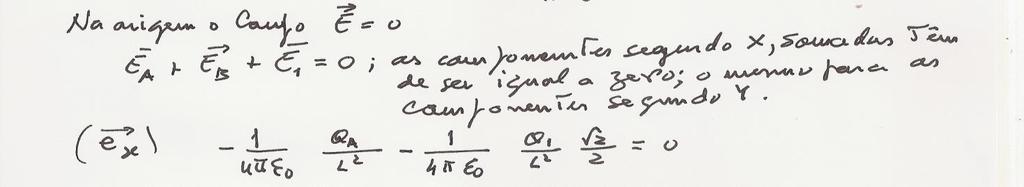 Na origem o Campo $\vec{E} = 0$
$\vec{E}_A + \vec{E}_B + \vec{E}_1 = 0$ ; as componentes segundo X, somadas Têm
de ser igual a zero; o mesmo para as
componentes segundo Y.
$(\vec{e_x})$ $-\frac{1}{4\pi\varepsilon_0} \frac{Q_A}{L^2} - \frac{1}{4\pi\varepsilon_0} \frac{Q_1}{L^2} \frac{\sqrt{2}}{2} = 0$